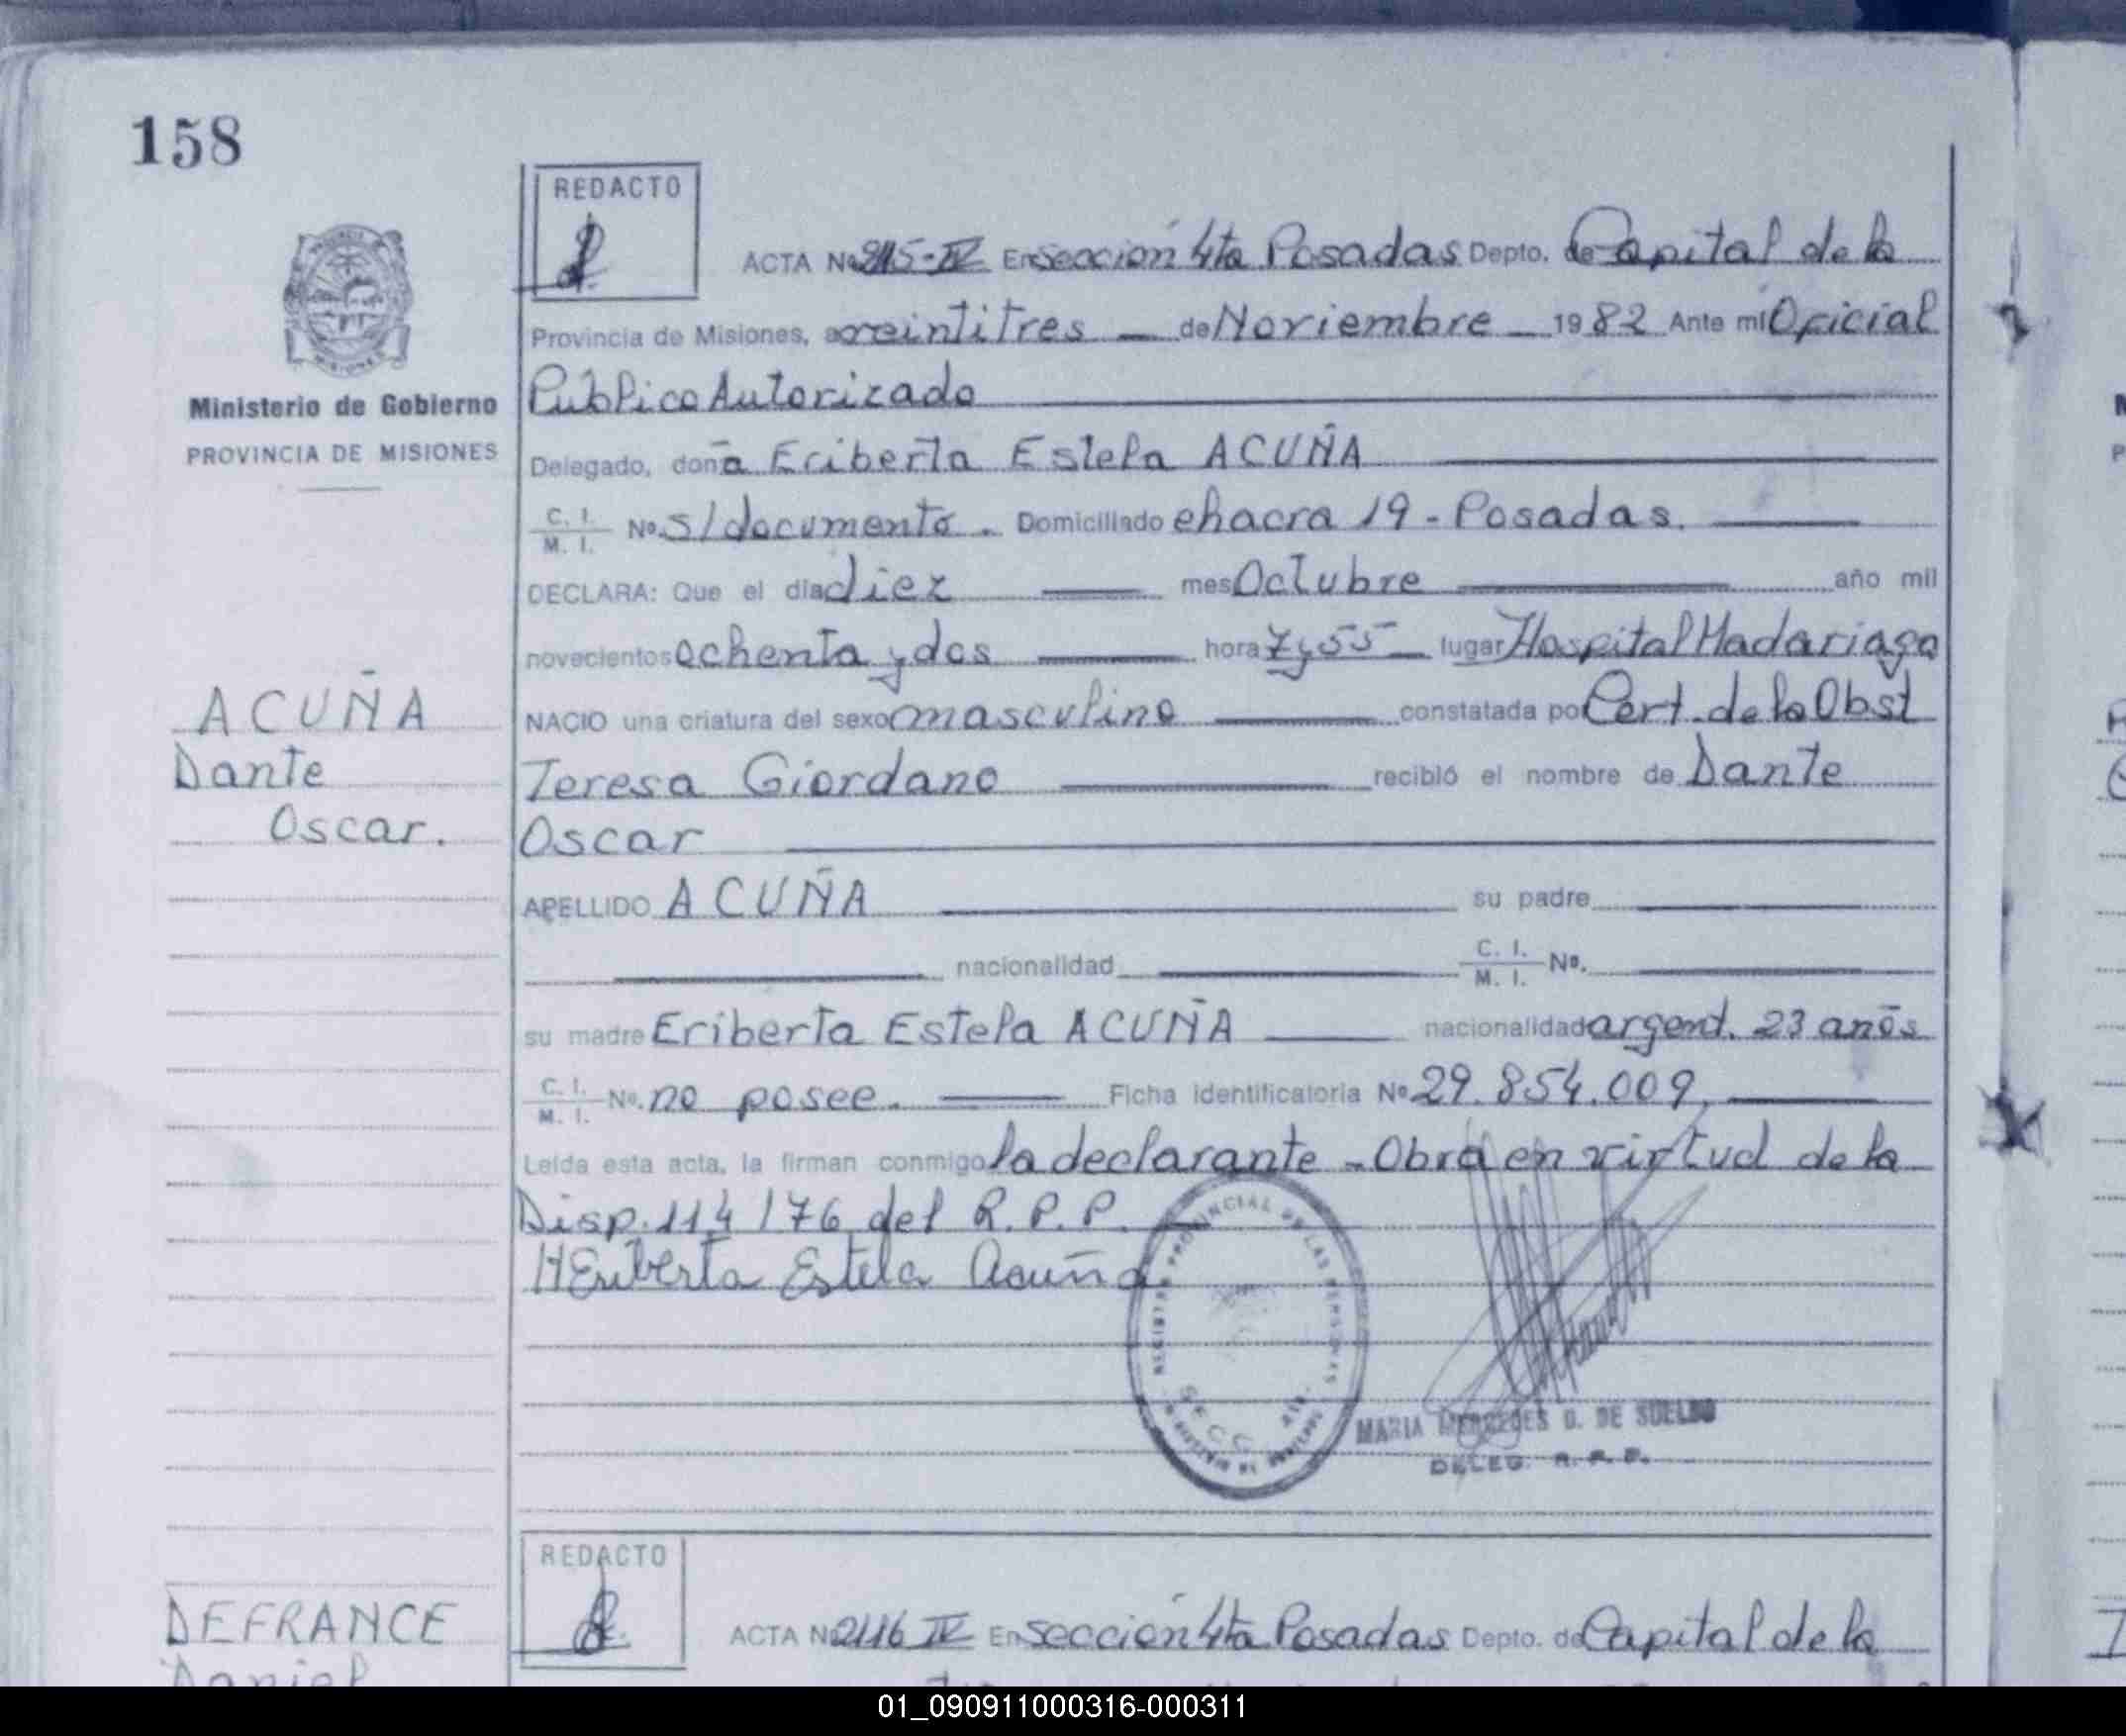 158
REDACTO
ACTA Nº 2115-IV En sección 4ta Posadas Depto. de Capital de la
Provincia de Misiones, a veintitres — de Noviembre — 1982 Ante mi Oficial
Público Autorizado
Ministerio de Gobierno
PROVINCIA DE MISIONES
Delegado, doña Eriberta Estela ACUÑA
C. I.
M. I. Nº. s/documento. Domiciliado chacra 19 - Posadas.
DECLARA: Que el día diez mes Octubre año mil
novecientos ochenta y dos hora 7 y 55 lugar Hospital Madariaga
NACIO una criatura del sexo masculino constatada por Cert. de la Obst
Teresa Giordano recibió el nombre de Dante
Oscar
ACUÑA
Dante
Oscar.
APELLIDO ACUÑA su padre
nacionalidad C. I.
M. I. Nº.
su madre Eriberta Estela ACUÑA nacionalidad argent. 23 años
C. I.
M. I. Nº. no posee. Ficha identificatoria Nº 29.854.009,
Leída esta acta, la firman conmigo la declarante - Obra en virtud de la
Disp. 114/76 del R.P.P.
HEriberta Estela Acuña
REGISTRO PROVINCIAL DE LAS PERSONAS
SECC. 4ta.
MARIA MERCEDES D. DE SUELDO
DELEG. R. P. P.
REDACTO
ACTA Nº 2116 IV En sección 4ta Posadas Depto. de Capital de la
DEFRANCE
Daniel
01_090911000316-000311